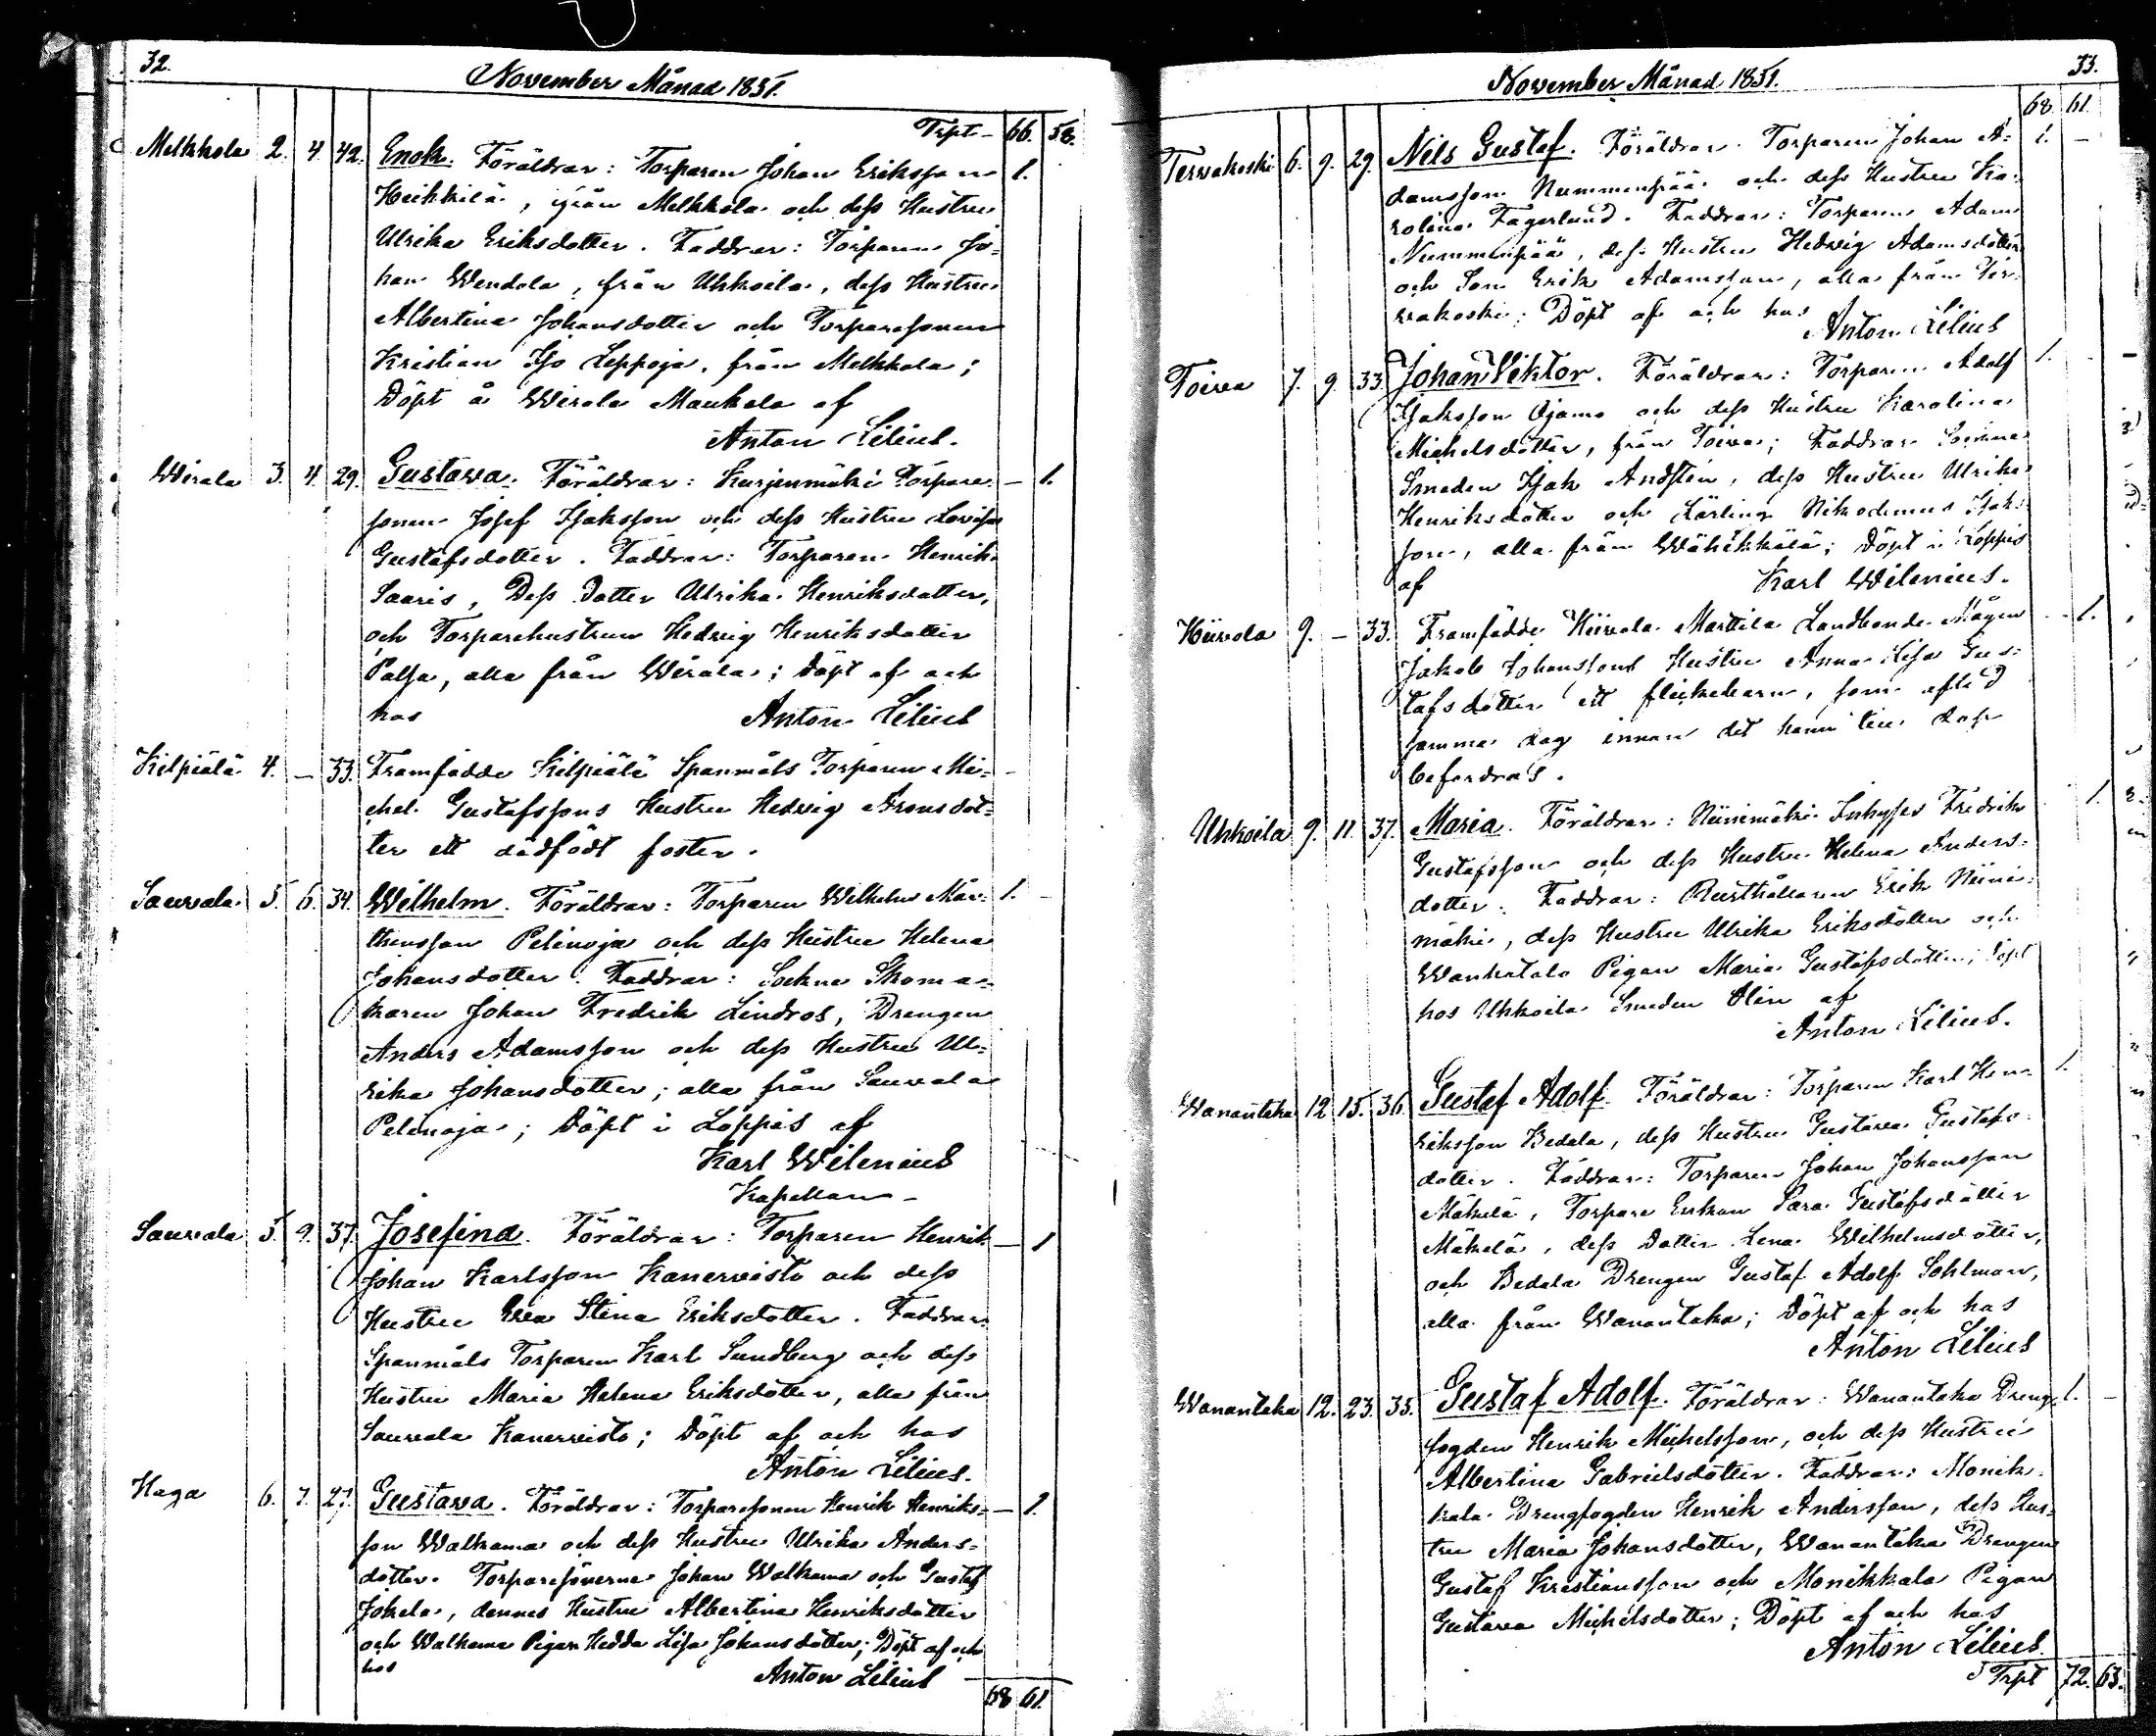 32.
November Månad 1851.
Trpt - 66. 58.
Melkkola 2. 4. 42. Enok. Föräldrar: Torparen Johan Eriksson 1.
Heikkilä, ifrån Melkkola och dess Hustru
Ulrika Eriksdotter. Faddrar: Torparen Jo-
han Wendola, från Uhkoila, dess Hustru
Albertina Johansdotter och Torparesonen
Kristian Iso Leppoja, från Melkkola;
Döpt å Wirala Maukola af
Anton Lilius.
Wirala 3. 4. 29. Gustawa. Föräldrar: Kurjenmäki Torpare- — 1.
sonen Josef Isaksson och dess Hustru Lovisa
Gustafsdotter. Faddrar: Torparen Henrik
Saaris, Dess Dotter Ulrika Henriksdotter,
och Torparehustrun Hedvig Henriksdotter
Palsa, alla från Wirala; Döpt af och
hos Anton Lilius
Kilpiälä 4. — 33. Framfödde Kilpiälä Spanmåls Torparen Mi-
chel Gustafssons Hustru Hedvig Aronsdot-
ter ett dödfödt foster.
Sauvala 5. 6. 34. Wilhelm. Föräldrar: Torparen Wilhelm Mår- 1. —
thensson Pelinoja och dess Hustru Helena
Johansdotter. Faddrar: Sockne Skoma-
karen Johan Fredrik Lindros, Drengen
Anders Adamsson och dess Hustru Ul-
rika Johansdotter; alla från Sauvala
Pelinoja; Döpt i Loppis af
Karl Wilenius
Kapellan -
Sauvala 5. 9. 37. Josefina. Föräldrar: Torparen Henrik — 1
Johan Karlsson Kanervisto och dess
Hustru Eva Stina Eriksdotter. Faddrar:
Spanmåls Torparen Karl Sundberg och dess
Hustru Maria Helena Eriksdotter, alla från
Sauvala Kanervisto; Döpt af och hos
Anton Lilius.
Haga 6. 7. 27. Gustawa. Föräldrar: Torparesonen Henrik Henriks- — 1.
son Walkama och dess Hustru Ulrika Anders-
dotter. Torparesönerne Johan Walkama och Gustaf
Jokela, dennes Hustru Albertina Henriksdotter
och Walkama Pigan Hedda Lisa Johansdotter; Döpt af och
hos Anton Lilius
68 61.
November Månad 1851. 33.
68. 61.
Terwakoski 6. 9. 29. Nils Gustaf. Föräldrar. Torparen Johan A- 1. —
damsson Nummenpää och dess Hustru Ka-
rolina Fagerlund. Faddrar: Torparen Adam
Nummenpää, dess Hustru Hedvig Adamsdotter
och Son Erik Adamsson, alla från Ter-
vakoski; Döpt af och hos
Anton Lilius
Toivea 7. 9. 33. Johan Viktor. Föräldrar: Torparen Adolf 1.
Isaksson Ojamo och dess Hustru Karolina
Michelsdotter, från Toivea; Faddrar Sockne
Smeden Isak Andstén, dess Hustru Ulrika
Henriksdotter och Lärling Nikodemus Isaks-
son, alla från Wähikkälä; Döpt i Loppis
af Karl Wilenius.
Hiivola 9. — 33. Framfödde Hiivola Marttila Landbonde Mågen — 1.
Jakob Johanssons Hustru Anna Lisa Gus-
tafsdotter ett flickebarn, som afled
samma dag innan det hann till dop
befordras.
Uhkoila 9. 11. 37. Maria. Föräldrar: Niinimäki Inhyses Fredrik 1.
Gustafsson och dess Hustru Helena Anders-
dotter. Faddrar: Rusthållaren Erik Niini-
mäki, dess Hustru Ulrika Eriksdotter och
Wanhatalo Pigan Maria Gustafsdotter; Döpt
hos Uhkoila Smeden Alin af
Anton Lilius.
Wanantaka 12. 15. 36. Gustaf Adolf. Föräldrar: Torparen Karl Hen- 1.
riksson Bedela, dess Hustru Gustava Gustafs-
dotter. Faddrar: Torparen Johan Johansson
Mäkelä, Torpare Enkan Sara Gustafsdotter
Mäkelä, dess Dotter Lena Wilhelmsdotter,
och Bedela Drengen Gustaf Adolf Sohlman,
alla från Wanantaka; Döpt af och hos
Anton Lilius
Wanantaka 12. 23. 35. Gustaf Adolf. Föräldrar: Wanantaka Dreng- 1. —
fogden Henrik Michelsson, och dess Hustru
Albertina Gabrielsdotter. Faddrar: Monik-
kala Drengfogden Henrik Andersson, dess Hus-
tru Maria Johansdotter, Wanantaka Drengen
Gustaf Kristiansson och Monikkala Pigan
Gustava Michelsdotter; Döpt af och hos
Anton Lilius
Trpt 72. 63.